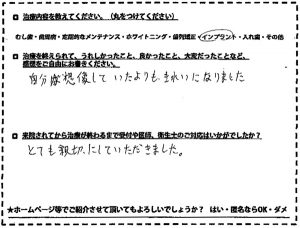 □ 治療内容を教えてください。（丸をつけてください）
むし歯・歯周病・定期的なメンテナンス・ホワイトニング・歯列矯正・インプラント・入れ歯・その他
□ 治療を終えられて、うれしかったこと、良かったこと、大変だったことなど、
感想をご自由にお書きください。
自分が想像していたよりも、きれいになりました
□ 来院されてから治療が終わるまで受付や医師、衛生士のご対応はいかがでしたか？
とても親切にしていただきました。
★ホームページ等でご紹介させて頂いてもよろしいでしょうか？ はい・匿名ならOK・ダメ